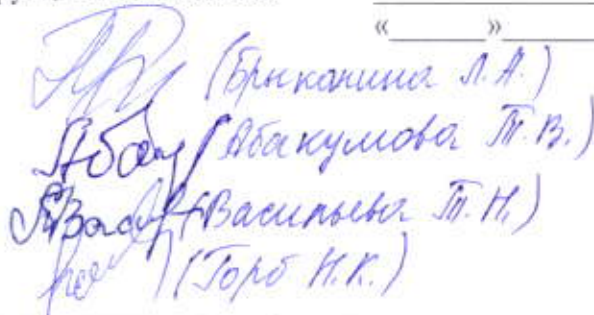 «______»
(Брыканина Л.А.)
(Абакумова Т.В.)
(Васильева Т.Н.)
(Горб Н.К.)